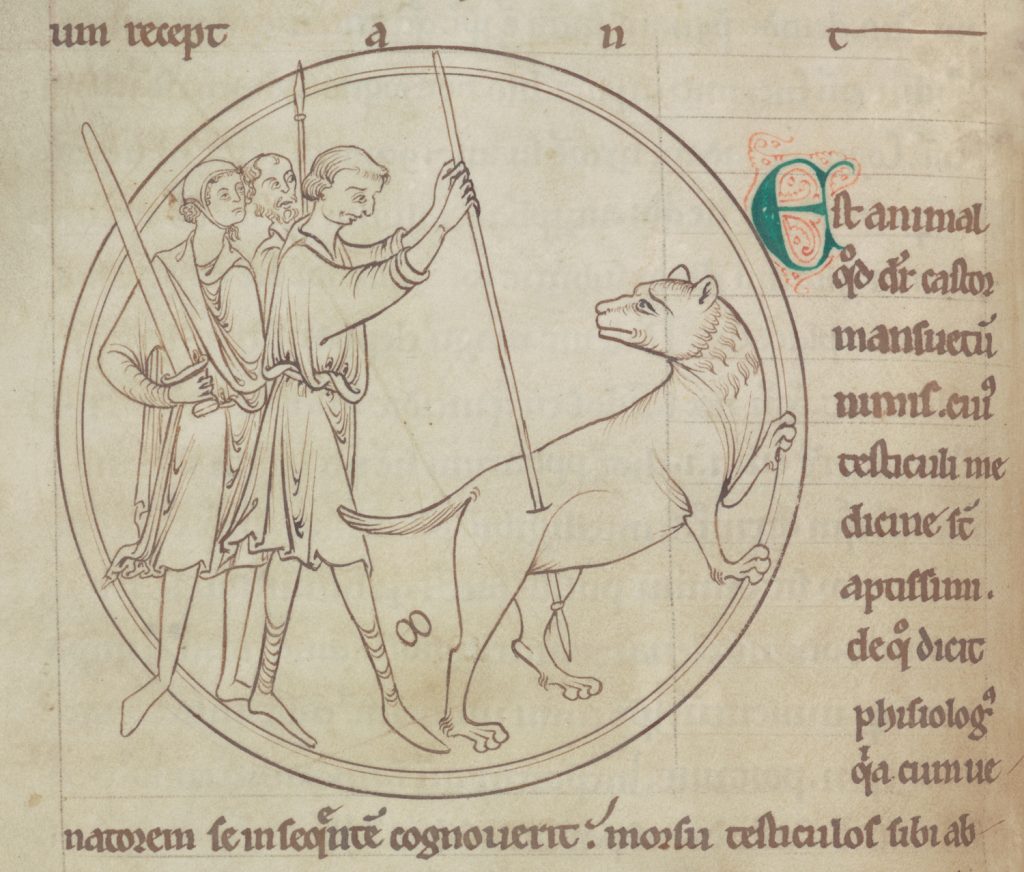 um recept a n t
Est animal
qd dr castor
mansuetū
nimis. eiꝰ
testiculi me
dicine st̄
aptissimi.
de qͦ dicit
phisiologꝰ
qͥa cum ue
natorem se inseqͣntē cognouerit: morsu testiculos sibi ab